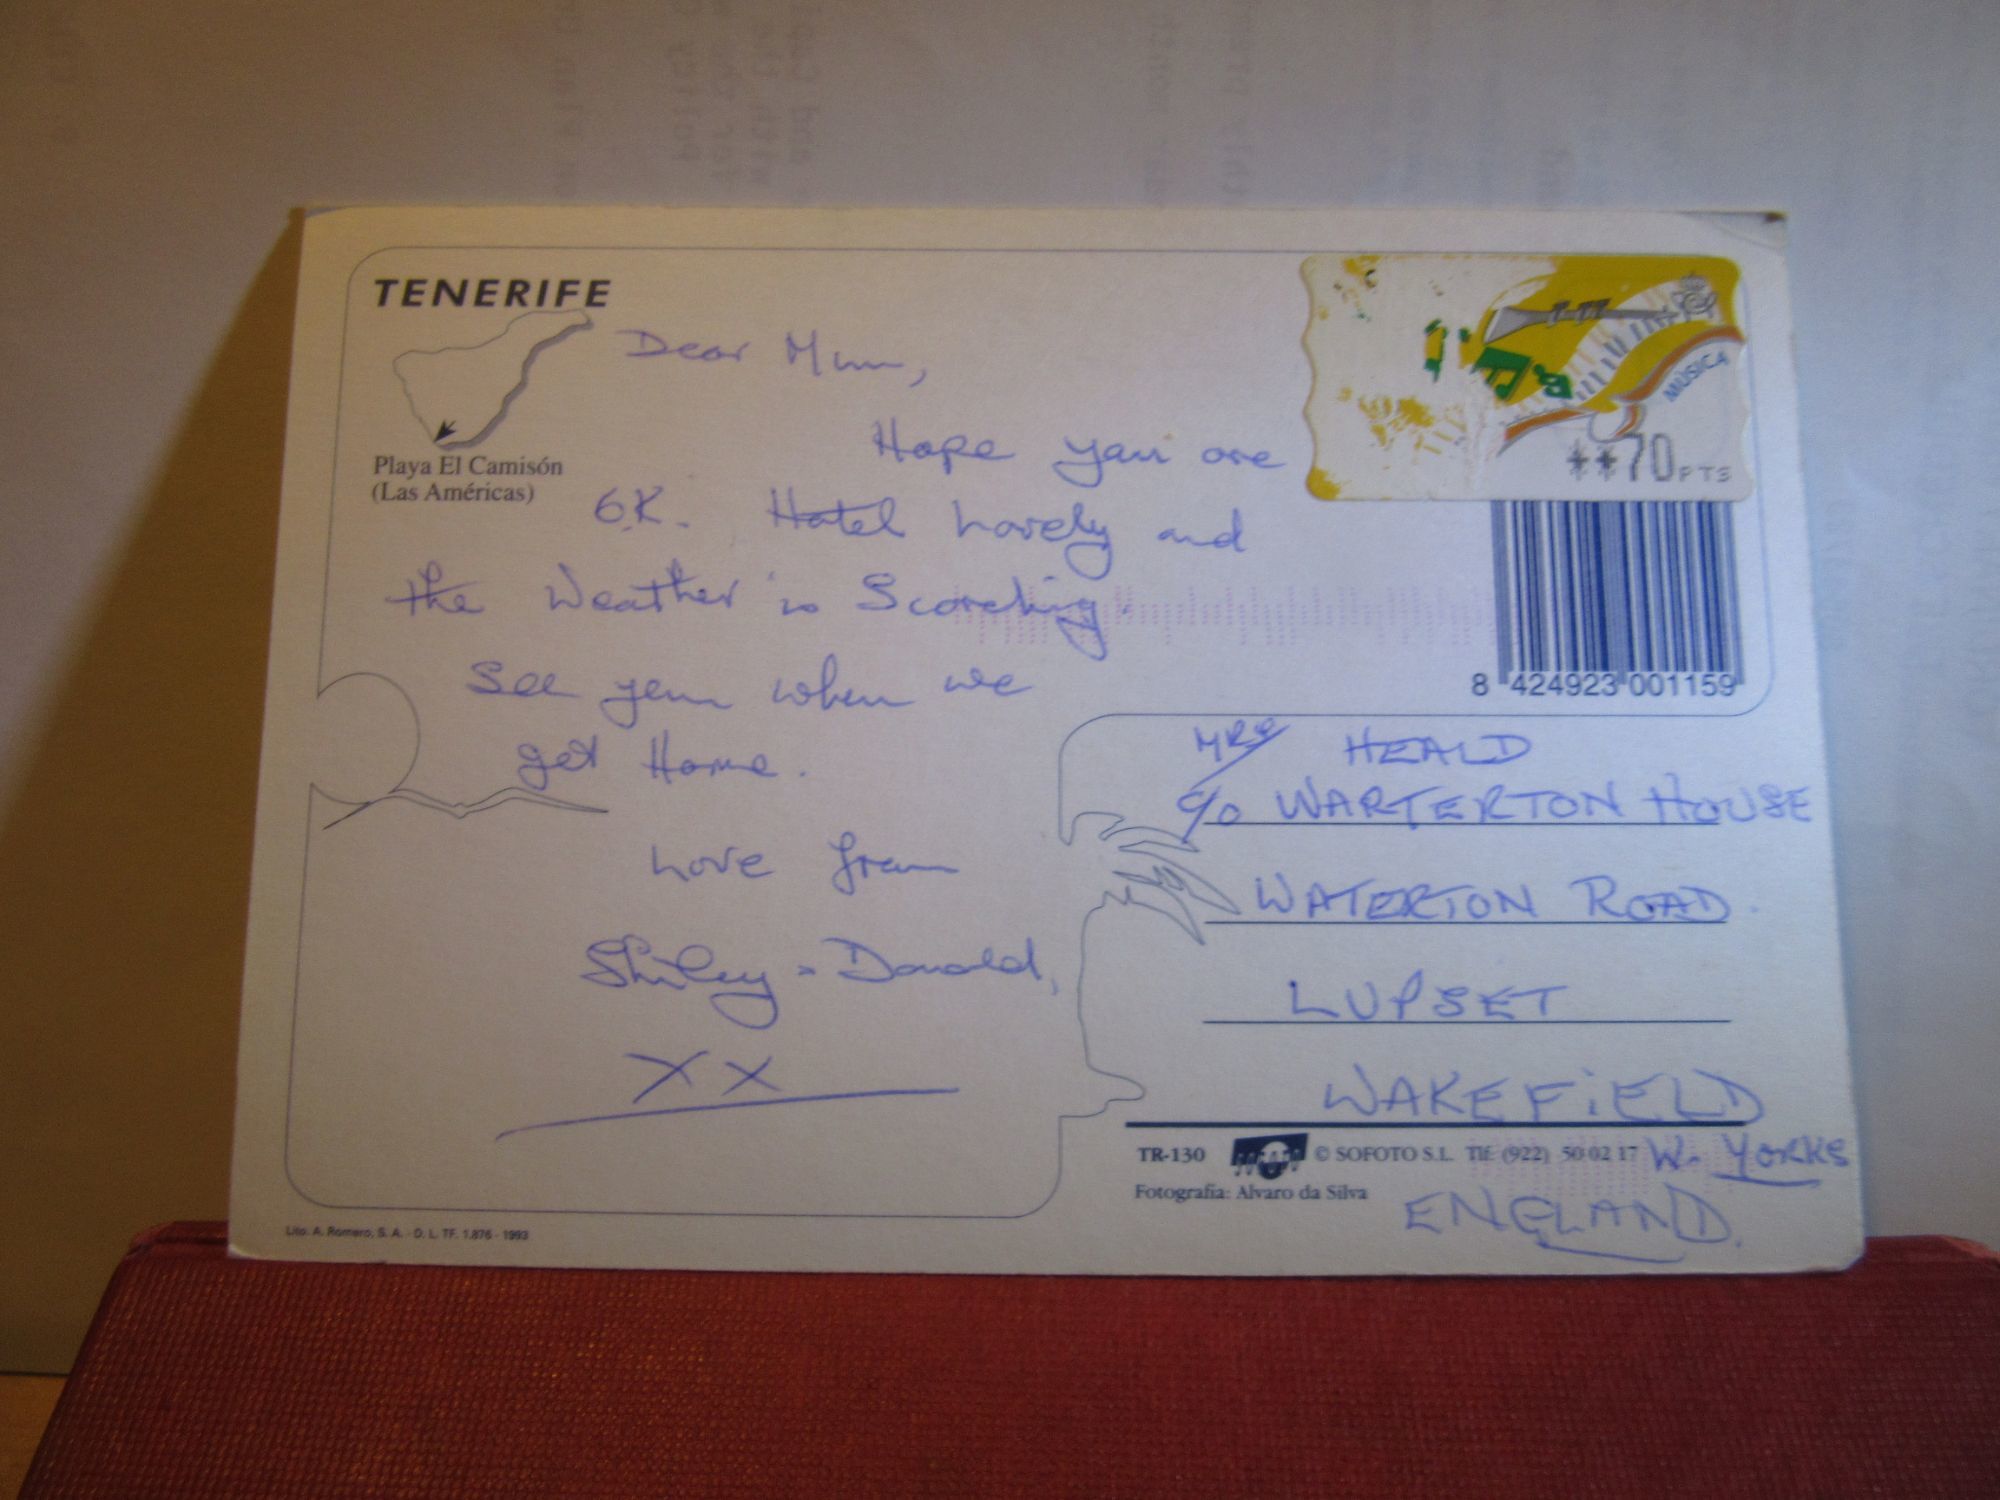 TENERIFE
Playa El Camisón
(Las Américas)
Dear Mum,
Hope you are
O.K. Hotel Lovely and
the Weather is Scorching.
See you when we
get Home.
Love from
Shirley - Donald,
XX
MÚSICA
**70 PTS
8 424923 001159
MRS HEALD
c/o WARTERTON HOUSE
WATERTON ROAD
LUPSET
WAKEFIELD
W. YORKS
ENGLAND.
TR-130 © SOFOTO S.L. Tlf. (922) 50 02 17
Fotografía: Alvaro da Silva
Lito. A. Romero, S. A. - D. L. TF. 1.876 - 1993